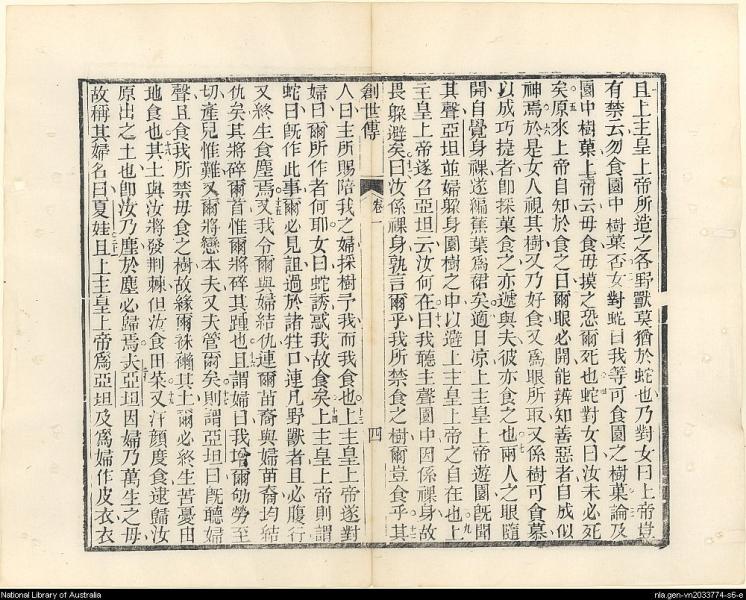 且上主皇上帝所造之各野獸莫猶於蛇也乃對女曰上帝豈
有禁云勿食園中樹菓否女對蛇曰我等可食園之樹菓論及
園中樹菓上帝云毋食毋摸之恐爾死也蛇對女曰汝未必死
矣原來上帝自知於食之日爾眼必開能辨知善惡者自成似
神焉於是女人視其樹又乃好食又為眼所取又係樹可食慕
以成巧捷者即採菓食之亦遞與夫彼亦食之也兩人之眼隨
開自覺身裸遂編蕉葉為裙矣適日涼上主皇上帝遊園既聞
其聲亞坦並婦躲身園樹之中以避上主皇上帝之自在也上
主皇上帝遂召亞坦云汝何在曰我聽主聲園中因係裸身故
畏躲避矣曰汝係裸身孰言爾乎我所禁食之樹爾豈食乎其
創世傳 卷一 四
人曰主所賜陪我之婦採樹予我而我食也上主皇上帝遂對
婦曰爾所作者何耶女曰蛇誘惑我故食矣上主皇上帝則謂
蛇曰既作此事爾必見詛過於諸牲口連凡野獸者且必腹行
又終生食塵焉又我令爾與婦結仇連爾苗裔與婦苗裔均結
仇矣其將碎爾首惟爾將碎其踵也且謂婦曰我增爾劬勞至
切產兒惟難又爾將戀本夫又夫管爾矣則謂亞坦曰既聽婦
聲且食我所禁毋食之樹故緣爾詛其土爾必終生苦憂由
地食也其土與汝將發荆棘但汝食田菜又汗顏度食逮歸汝
原出之土也即汝乃塵於塵必歸焉夫亞坦因婦乃萬生之母
故稱其婦名曰夏娃且上主皇上帝為亞坦及為婦作皮衣衣
National Library of Australia
nla.gen-vn2033774-s5-e